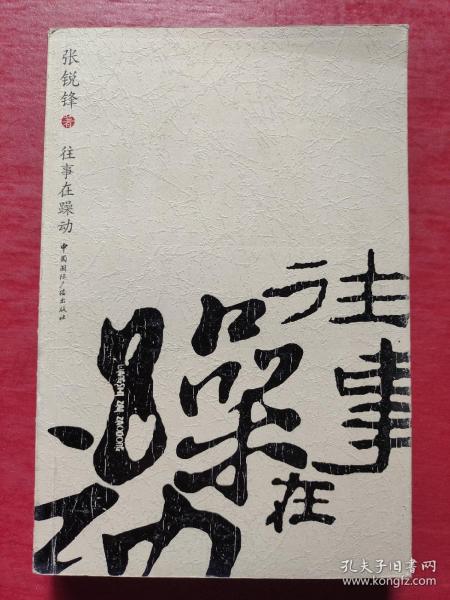 张锐锋 著 往事在躁动 中国国际广播出版社
往事在躁动
WANGSHI ZAI ZAODONG
孔夫子旧书网
www.kongfz.com